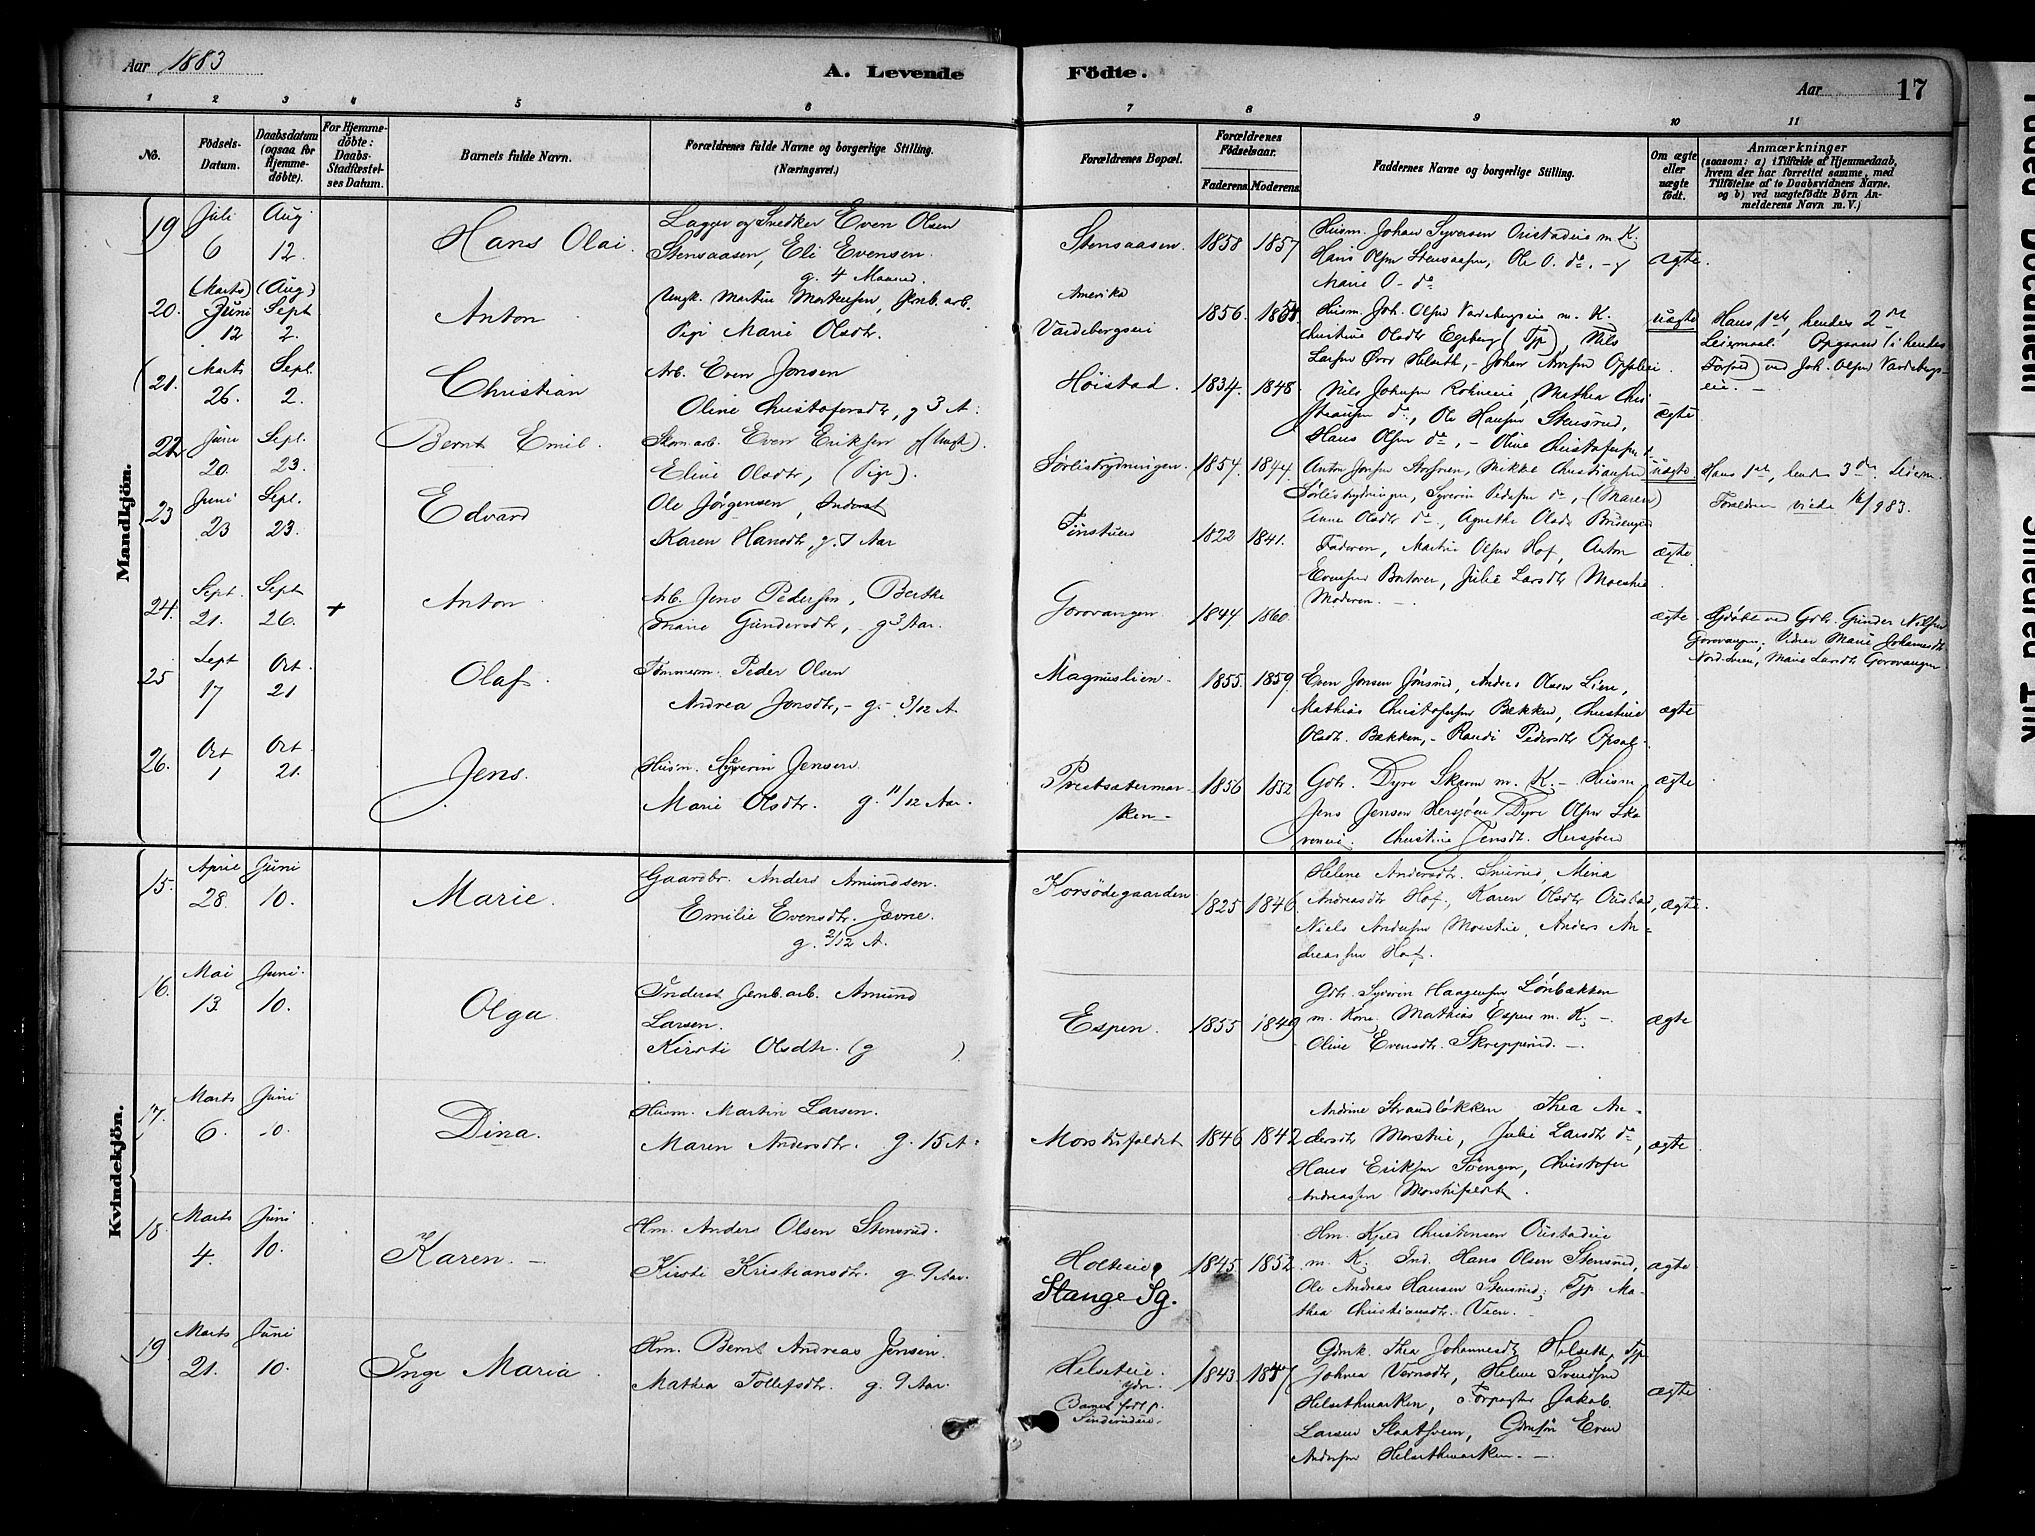 Aar 1883
A. Levende Födte.
Aar 17
1 2 3 4 5 6 7 8 9 10 11
No.
Födsels-Datum.
Daabsdatum (ogsaa for Hjemme-döbte).
For Hjemme-döbte: Daabs-Stadfæstel-ses Datum.
Barnets fulde Navn.
Forældrenes fulde Navne og borgerlige Stilling. (Næringsvei.)
Forældrenes Bopæl.
Forældrenes Födselsaar.
Faderens. Moderens.
Faddernes Navne og borgerlige Stilling.
Om ægte eller uægte født.
Anmærkninger
(saasom: a) i Tilfælde af Hjemmedaab, hvem der har forrettet samme, med Tilföielse af to Daabsvidners Navne. og b) ved uægtefödte Börn Anmelderens Navn m. V.)
Mandkjön.
19 Juli 6 Aug. 12
Hans Olai.
Snedker Even Olsen
Stensaasen, Eli Evensen.
g. 4 Maaned.
Stensaasen. 1858 1857
Husm. Johan Syversen m. K.
Hans Olsen Stensaasen, Ole O. do. - 
Marie O. do
ægte.
20. (Marts) Juni 12 (Aug) Sept 2.
Anton
Ungk. Martin Mortensen, Jernb. arb.
Pige Marie Olsdtr.
Amerika
Vardebergseie 1856.
Husm. Joh. Olsen Vardebergseie m. K.
Christine Olsdtr Egeberg (Pp), Nils
Larsen Helseth, - Johan
uægte
Hans 1ste, hendes 2den
Leiermaal. Opgaven (i hendes
Forfald) ved Joh. Olsen Vardebergs-
eie. -
21. Marts 26. Sept. 2.
Christian
Arb. Even Jonsen
Oline Christofersdtr, g 3 A.
Höistad. 1834. 1848.
Nils Johnsen, Mathea Chri
stiansen do, Ole Hansen Stensrud,
Hans Olsen do, - Oline Christofersen
ægte
22 Juni 20. Sept. 23.
Bernt Emil.
Even Eriksen (Ungk).
Eline Olsdtr, (Pige).
Sörlistrydningen. 1854. 1844.
Mikkel Christiansen
Sörlistrydningen, Syverin Pedersen do, (Maren)
Anne Olsdtr do, Agnethe Olsdtr
uægte
Hans 1ste, hendes 3die Leierm.
Forældrene viede
23 Juni 23 Sept. 23.
Edvard
Ole Jörgensen, Inderst
Karen Hansdtr, g. 7 Aar
1822 1841.
Faderen, Martin Olsen Hof, Anton
Evensen, Julie Larsdtr
Moderen. -
ægte
24. Sept. 21. Sept 26. +
Anton
Arb. Jens Pedersen, Berthe
Marie Gundersdtr, - g 3 Aar.
Gorovangen. 1844. 1860.
ægte
Hjdöbt ved Gbr. Gunder Nilsen
Gorovangen, Vidner Marie Johannesdtr
Marie Larsdtr Gorovangen
25 Sept 17 Oct. 21
Olaf.
Tömmerm. Peder Olsen
Andrea Jensdtr, - g. - 3/12 A.
Magnuslien. 1855. 1859.
Even Jonsen, Anders Olsen Lien,
Mathias Christofersen Bækken, Christine
Olsdtr. Bækken, - Randi Pedersdtr Opsal -
ægte
26. Oct 1 Oct. 21.
Jens.
Husm. Syverin Jensen
Marie Olsdtr. g. 11/12 Aar.
Prestsætermar-
ken - 1856 1852
Gbr. Dyre Skaven m. K. - Husm
Jens Jensen Hersjöen, Dyre Olsen Ska
veneie. Christine Jensdtr. Hersjöen
ægte
Kvindekjön.
15. April 28. Juni 10.
Marie.
Gaardbr. Anders Amundsen.
Emilie Evensdtr. Jevne.
g. 2/12 A.
Korsödegaarden 1825 1846.
Helene Andersdtr. Snurud, Mina
Andreasdtr Hof, Karen Olsdtr
Niels Andersen Morstue, Anders An-
dreassen Hof.
ægte.
16. Mai 13. Juni. 10.
Olga.
Inderst Jernb. arb. Amund
Larsen.
Kirsti Olsdtr. (g )
Espen. 1855 1849
Gbr. Syverin Haagensen Lönbækken
m. Kone, Mathias Espen m. K. -
Oline Evensdtr. Skrepperud. -
ægte
17. Marts 6. Juni 10
Dina.
Husm. Martin Larsen.
Maren Andersdtr. g. 15 A.
Morstufaldet 1846 1842
Andine Strandlökken, Thea An-
dersdtr Morstue, Julie Larsdtr do,
Hans Eriksen Svengen, Christofer
Andreassen Morstufaldet.
ægte
18. Marts 4. Juni 10.
Karen. -
Hm. Anders Olsen Stensrud.
Kirsti Kristiansdtr. g. 9 Aar.
Holteeie,
Stange Sg. 1845. 1852
Hm. Kjeld Christensen
m. K. Ind. Hans Olsen Stensrud,
Ole Andreas Hansen Stensrud; Pp. Ma-
thea Christiansdtr. Veen. -
ægte
19. Marts 21. Juni 10.
Inge Maria.
Hm. Bernt Andreas Jensen.
Mathea Tollefsdtr. g. 9 Aar.
Helseteie
ydre.
Barnet födt p. 1843
Gdmk. Thea Johannesdtr Helseth, Pp
Johnea, Helene Svendsen
Helsethmarken, Forpagter Jakob
Larsen, Gdmsön Even
Andersen Helsethmarken. -
ægte